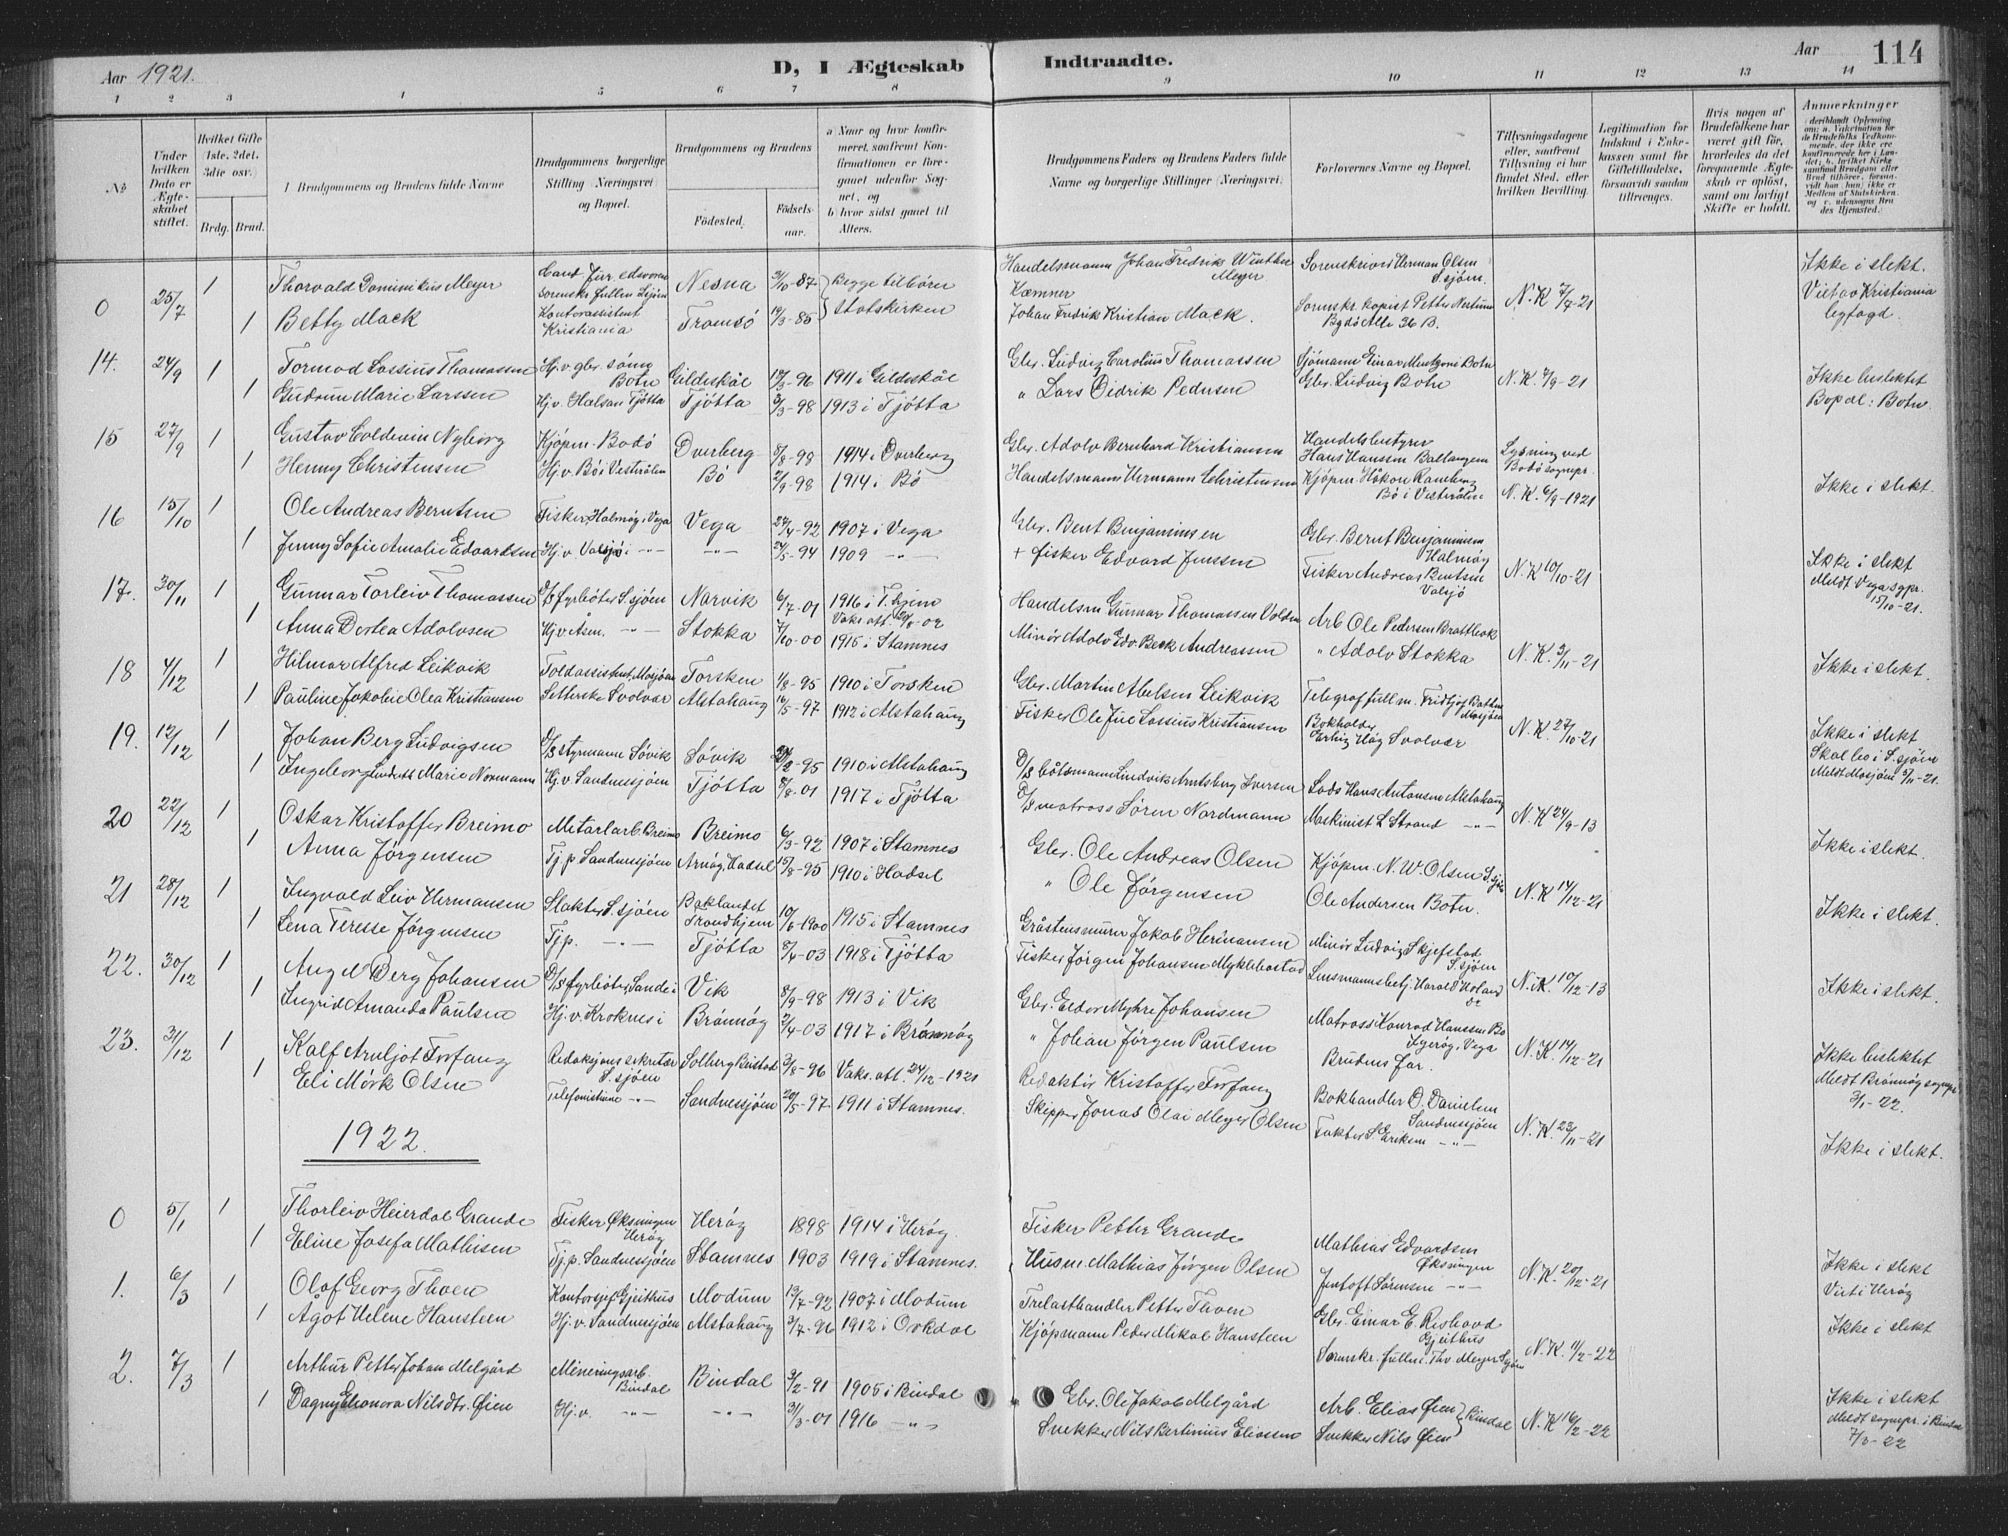 Aar 1921.
D, I Ægteskab Indtraadte.
Aar 114
1 2 3 4 5 6 7 8 9 10 11 12 13 14
No
Under hvilken Dato er Ægteskabet stiftet.
Hvilket Gifte 1ste, 2det, 3die osv.
Brdg. Brud.
Brudgommens og Brudens fulde Navne
Brudgommens borgerlige Stilling (Næringsvei) og Bopæl.
Brudgommens og Brudens
Fødested.
Fødselsaar.
a) Naar og hvor konfirmeret, saafremt Konfirmationen er foregaaet udenfor Sognet, og
b) hvor sidst gaaet til Alters.
Brudgommens Faders og Brudens Faders fulde Navne og borgerlige Stillinger (Næringsvei).
Forlovernes Navne og Bopæl.
Tillysningsdagene eller, saafremt Tillysning ei har fundet Sted, efter hvilken Bevilling.
Legitimation for Indskud i Enkekassen samt for Giftetilladelse, forsaavidt saadan tiltrænges.
Hvis nogen af Brudefolkene har været gift før, hvorledes da det foregaaende Ægteskab er opløst, samt om lovligt Skifte er holdt.
Anmærkninger
0 25/7 1 Thorvald Dominikus Meyer Cand. jur. edsvoren Sorenskr. fullm. Sjøen Nesna 31/10-87 Begge tilhører Statskirken Handelsmann Johan Fredrik Winther Meyer Sorenskriver Herman Olsen S.sjøen N.K. 7/7-21 Ikke i slekt.
1 Betty Mack Kontorassistent Kristiania Tromsø 19/3-85 Kæmner Johan Fredrik Kristian Mack. Sorenskr. kopist Petter Bygdø Alle 36 B. Viet av Kristiania byfogd.
14. 24/9 1 Tormod Lassius Thomassen Hj. v. gbr. sønn Botn Gildeskål 12/3-96 1911 i Gildeskål Gbr. Ludvig Carolius Thomassen Sjømann Einar Botn N.K. 7/9-21 Ikke beslektet
1 Gudrun Marie Larssen Hj. v. Tjøtta Tjøtta 3/3-98 1913 i Tjøtta " Lars Didrik Pedersen Gbr. Ludvig Botn Bopæl: Botn
15 27/9 1 Gustav Coldevin Nyborg Kjøpm. Bodø Dverberg 8/8-90 1914 i Dverberg Gbr. Adolv Bernhard Kristiansen Handelsbestyrer Hans Hanssen Ballangen Lysning ved Bodø sognepr.
1 Henny Christensen Hj. v. Bø i Vesterålen Bø 2/9-98 1914 i Bø Handelsmann Hermann Christensen Kjøpm. Håkon Bø i Vesterålen N.K. 6/9-1921 Ikke i slekt.
16 15/10 1 Ole Andreas Berntsen Fisker, Halmøy i Vega Vega 27/4-92 1907 i Vega Gbr. Bent Benjaminsen Gbr. Bernt Benjaminsen Halmøy
1 Jenny Sofie Amalie Edvardsen Hj. v. Valsjø i -"- -"- 24/5-94 1909 -"- + fisker Edvard Jenssen Fisker Andreas Bentsen Valsjø N.K. 10/10-21 Ikke i slekt Meldt Vega sgpr. 15/10-21.
17. 30/11 1 Gunnar Torleiv Thomassen D/S fyrbøter S.sjøen Narvik 6/7-01 1916 i T.hjem Vaks. att. Handelsm. Gunnar Thomassen Volden Arb. Ole Pedersen Brattbak
1 Anna Dortea Adolvsen Hj. v. Åsen -"- Stokka 7/10-00 1915 i Stamnes Minør Adolv Edv. Beck Andreassen " Adolv Stokka N.K. 3/11-21 Ikke i slekt.
18 4/12 1 Hilmar Alfred Leikvik Toldassistent, Mosjøen Torsken 1/8-95 1910 i Torsken Gbr. Martin Abelsen Leikvik Telegraffullm. Fridtjof Mosjøen
1 Pauline Jakobie Olea Kristiansen Setterske Svolvær Alstahaug 16/5-97 1912 i Alstahaug Fisker Ole Jul Lassius Kristiansen Bokholder Svolvær N.K. 27/10-21 Ikke i slekt Skal bo i S.sjøen Meldt Mosjøen 5/11-21.
19. 12/12 1 Johan Berg Ludvigsen D/S styrmann Søvik Søvik 1910 i Alstahaug D/S båtsmann Ludvik Arntsberg Iversen Lods Hans Antonsen Alstahaug
1 Ingeborg Marie Normann Hj. v. Sandnessjøen Tjøtta 8/8-01 1917 i Tjøtta D/S matross Søren Nordmann Maskinist L Strand -"- N.K. 24/9-13 Ikke i slekt.
20 22/12 1 Oskar Kristoffer Breimo Metalarb. Breimo Breimo 6/3-92 1907 i Stamnes Gbr. Ole Andreas Olsen Kjøpm. N.W. Olsen S.sjøen
1 Anna Jørgensen Tj.p. Sandnessjøen Arnøy, Hadsel 15/8-95 1910 i Hadsel " Ole Jørgensen Ole Andersen Botn. N.K. 14/12-21 Ikke i slekt.
21 28/12 1 Ingvald Leiv Hermansen Slakter S.sjøen Baklandet Trondhjem 10/6-1900 1915 i Stamnes Gråstensmurer Jakob Hermansen Minør Ludvig Skjefstad S.sjøen
1 Lena Terese Jørgensen Tjp. -"- Tjøtta 8/4-03 1918 i Tjøtta Fisker Jørgen Johansen Myklebostad Lensmannsbetj. Harald Holand N.K. 10/12-13 Ikke i slekt.
22. 30/12 1 Angel Berg Johansen D/S fyrbøter, Sande i Vik 8/9-98 1913 i Vik Gbr. Eldor Myhre Johansen Matross Konrad Hanssen Bo Igerøy, Vega
1 Ingrid Amanda Paulsen Hj. v. Kroknes i Brønnøy 2/4-03 1917 i Brønnøy " Johan Jørgen Paulsen Brudens far. N.K. 14/12-21 Ikke beslektet Meldt Brønnøy sognepr. 3/1-22.
23. 31/12 1 Ralf Arnljot Torfang Redaksjonssekretær S.sjøen Solberg Bustad 3/8-96 Vaks. att. 24/12-1921 Redaktør Kristoffer Torfang Bokhandler O. Danielsen Sandnessjøen
1 Eli Mørk Olsen Telefonistinne -"- Sandnessjøen 20/5-97 1911 i Stamnes. Skipper Jonas Olai Meyer Olsen Faktor S. Eriksen -"- N.K. 23/11-21 Ikke i slekt.
1922.
0 5/1 1 Thorleiv Heierdal Grande Fisker Øksningen Herøy Herøy 1898 1914 i Herøy. Fisker Petter Grande Mathias Edvardsen Øksningen
1 Eline Josefa Mathisen Tj.p. Sandnessjøen Stamnes 1903 1919 i Stamnes. Husm. Mathias Jørgen Olsen Jentoft Sørensen -"- N.K. 20/12-21 Ikke i slekt Viet i Herøy
1. 6/3 1 Olaf Georg Thoen Kontorsjef Gjeithus Modum 19/7-92 1907 i Modum Trelasthandler Petter Thoen Gbr. Einar E. Geithus
1 Agot Helene Hansteen Hj. v. Sandnessjøen Alstahaug 3/7-96 1912 i Orkdal Kjøpmann Peder Mikal Hansteen Sorenskr. fullm. Thv. Meyer S.sjøen N.K. 11/2-22 Ikke i slekt
2. 7/3 1 Arthur Petter Johan Melgård Mineringsarb. Bindal Bindal 3/2-91 1905 i Bindal Gbr. Ole Jakob Melgård Arb. Elias Øien Bindal
1 Dagny Eleonora Nilsdtr. Øien Hj. v. -"- -"- 31/3-01 1916 -"- Snekker Nils Bartinius Eliassen Snekker Nils Øien N.K. 16/2-22 Ikke i slekt Meldt sognepr. i Bindal 7/3-22